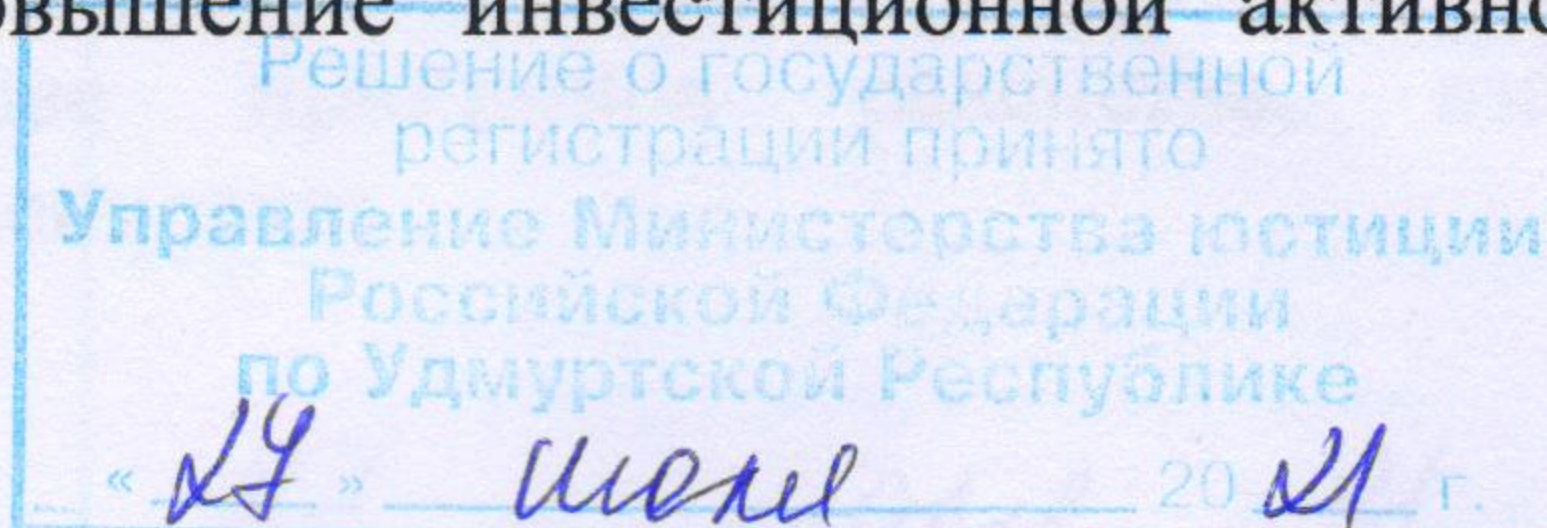 овышение инвестиционной активно
Решение о государственной
регистрации принято
Управление Министерства юстиции
Российской Федерации
по Удмуртской Республике
« » 20 21 г.